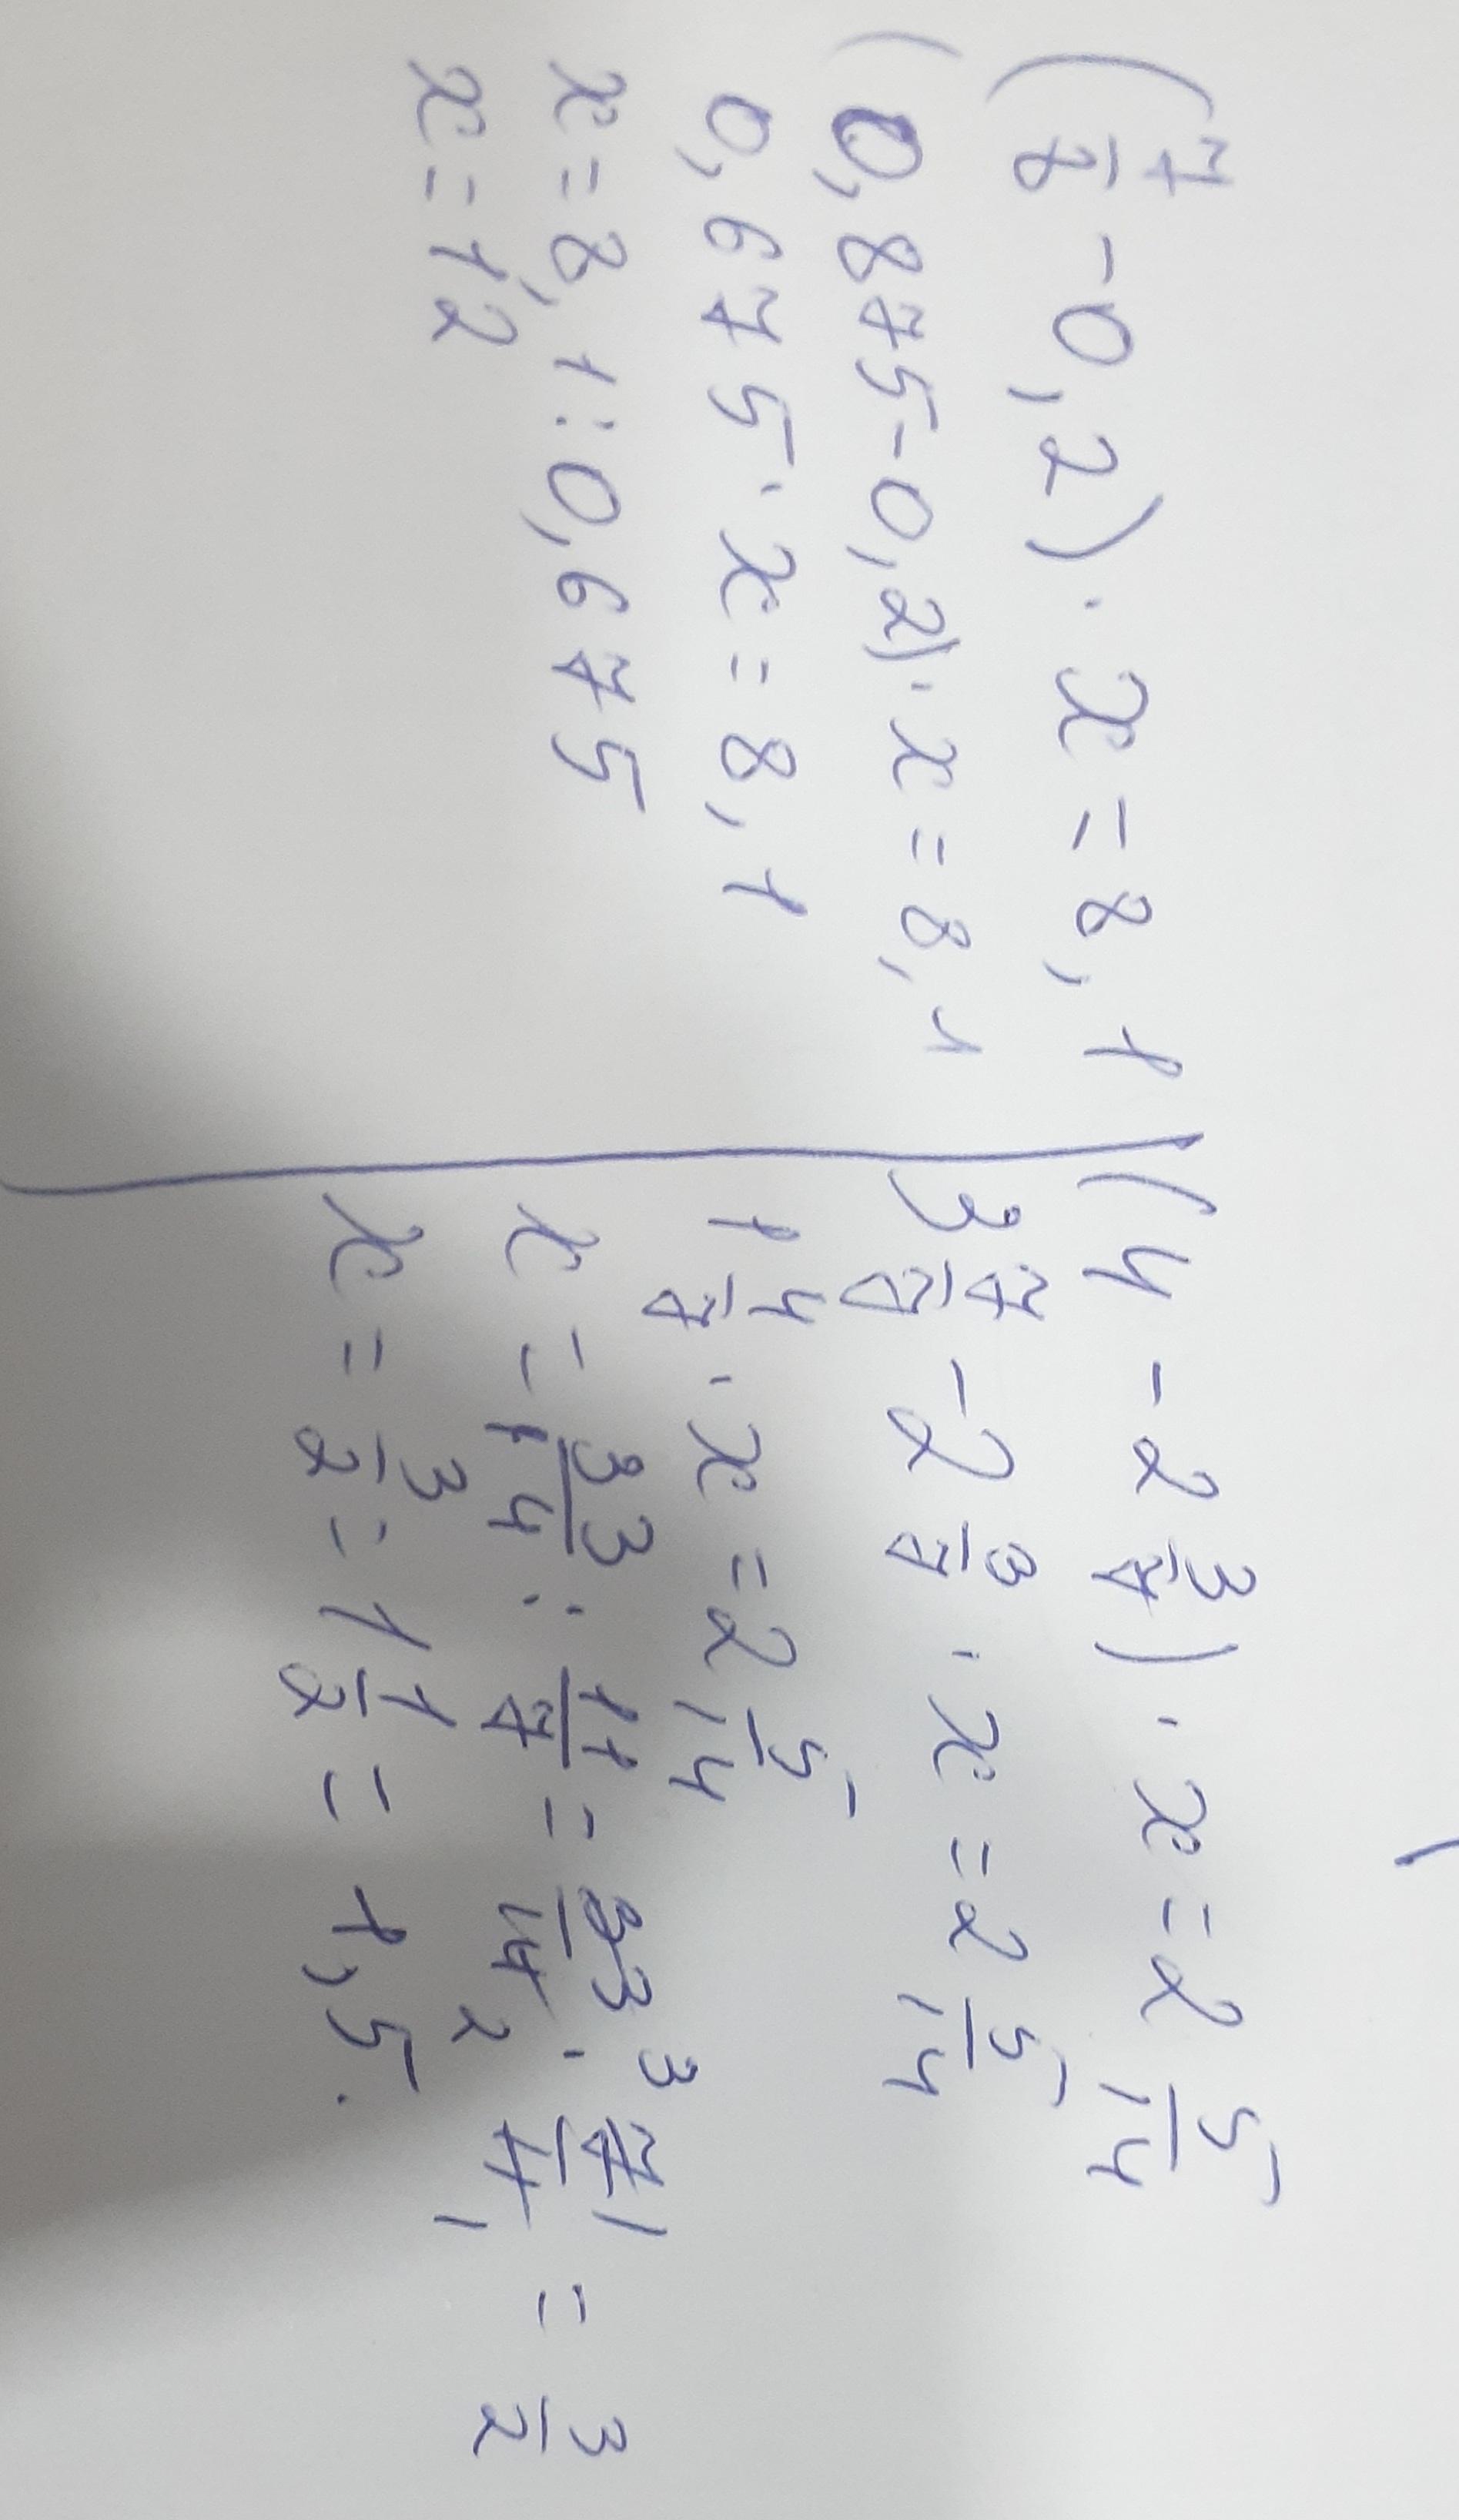 (7/8 - 0,2) · x = 8,1
(0,875 - 0,2) · x = 8,1
0,675 · x = 8,1
x = 8,1 : 0,675
x = 12
(4 - 2 3/7) · x = 2 5/14
3 7/7 - 2 3/7 · x = 2 5/14
1 4/7 · x = 2 5/14
x = 33/14 : 11/7 = 33 3/14 2 · 7 1/11 1 = 3/2
x = 3/2 = 1 1/2 = 1,5.